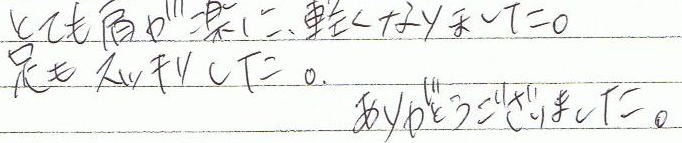 とても肩が楽に、軽くなりました。
足もスッキリした。
ありがとうございました。